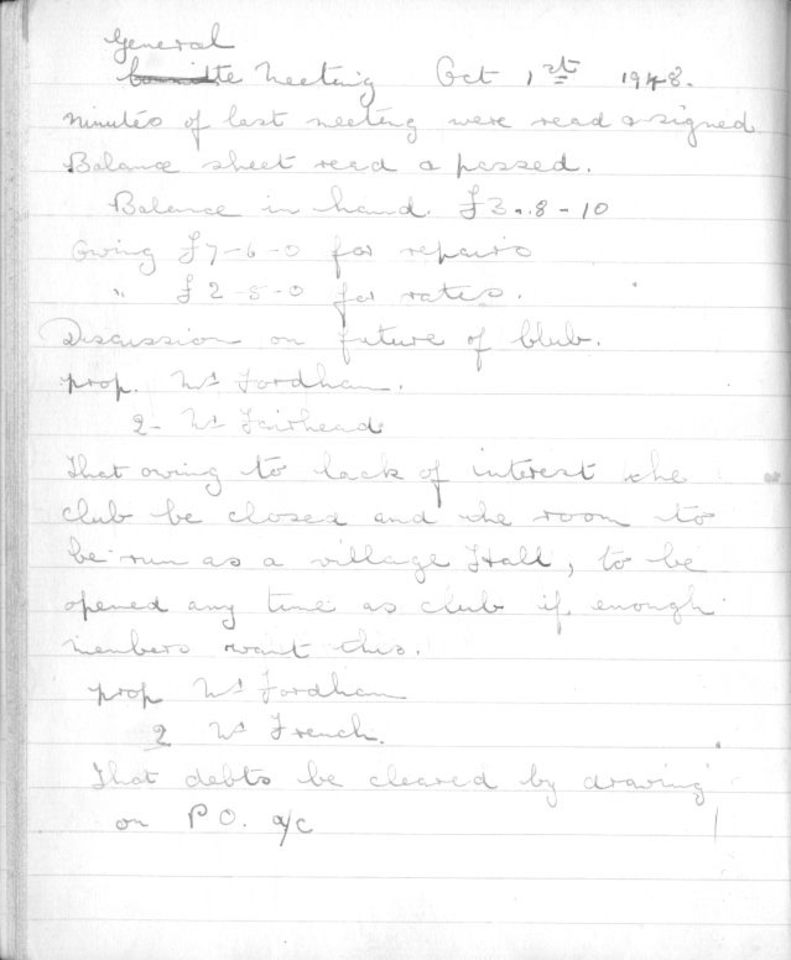 General
Committe Meeting Oct 1st 1948.
Minutes of last meeting were read & signed
Balance sheet read & passed.
Balance in hand. £3-8-10
Owing £7-6-0 for repairs
" £2-5-0 for rates.
Discussion on future of Club.
prop. Mr Fordham.
2- Mr Fairhead
That owing to lack of interest the
club be closed and the room to
be run as a village Hall, to be
opened any time as club if enough
members want this.
prop Mr Fordham
2 Mr French.
That debts be cleared by drawing
on P.O. a/c